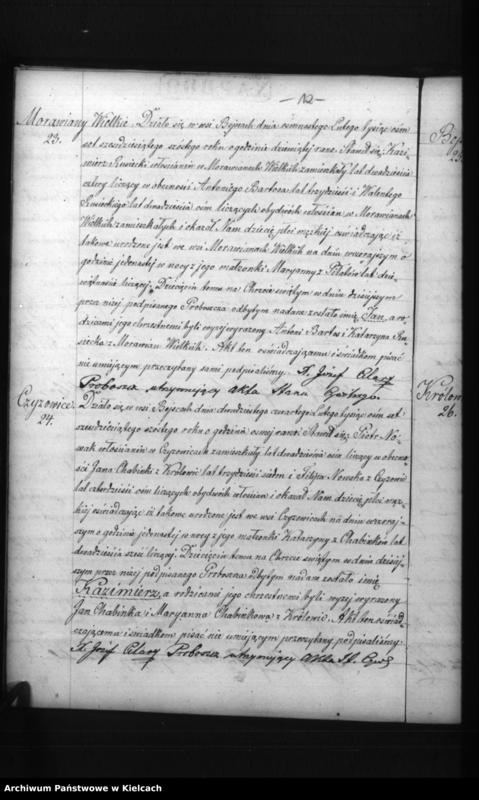 — 12 —
Morawiany Wielkie. Działo się w wsi Bejscach dnia osmnastego Lutego tysiąc ośm
23.
set sześćdziesiątego szóstego roku o godzinie dziewiątej rano. Stawił się Kazi-
mierz Rusiecki włościanin w Morawianach Wielkich zamieszkały lat dwadzieścia
cztery liczący w obecności Antoniego Bartosa lat trzydzieści i Walentego
Rusieckiego lat dwadzieścia ośm liczących obydwóch włościan w Morawianach
Wielkich zamieszkałych i okazał Nam dziecię płci męzkiej oświadczając iż
takowe urodzone jest we wsi Morawianach Wielkich na dniu wczorajszym o
godzinie jedenastej w nocy z jego małżonki Maryanny z lat dzie-
więtnaście liczącej. Dziecięciu temu na Chrzcie świętym w dniu dzisiejszym
przez niżej podpisanego Proboszcza odbytym nadane zostało imię Jan, a ro-
dzicami jego chrzestnemi byli wyżej wyrażony Antoni Bartos i Katarzyna Ru-
siecka z Morawian Wielkich. Akt ten oświadczającemu i świadkom pisać
nie umiejącym przeczytany sami podpisaliśmy. X. Józef
Proboszcz utrzymujący Akta Stanu Cywilnego.
Czyzowice.
24.
Działo się w wsi Bejscach dnia dwudziestego czwartego Lutego tysiąc ośm set
sześćdziesiątego szóstego roku o godzinie ósmej rano. Stawił się Piotr No-
wak włościanin w Czyzowicach zamieszkały lat dwadzieścia ośm liczący w obecno-
ści Jana Chabinki z Królowic lat trzydzieści siedm i Filipa Nowaka z Czyzowic
lat czterdzieści ośm liczących obydwóch włościan i okazał Nam dziecię płci męz-
kiej oświadczając iż takowe urodzone jest we wsi Czyzowicach na dniu wczoraj-
szym o godzinie jedenastej w nocy z jego małżonki Katarzyny z Chabinków lat
dwadzieścia sześć liczącej. Dziecięciu temu na Chrzcie świętym w dniu dzisiej-
szym przez niżej podpisanego Proboszcza odbytym nadane zostało imię
Kazimierz, a rodzicami jego chrzestnemi byli wyżej wyrażony
Jan Chabinka i Maryanna Chabinkowa z Królowic. Akt ten oświad-
czającemu i świadkom pisać nie umiejącym przeczytany podpisaliśmy.
X. Józef Proboszcz utrzymujący Akta St. Cywil.
Królow
26.
Archiwum Państwowe w Kielcach